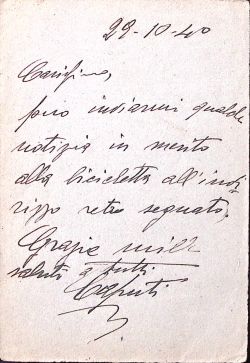 29-10-40
Carissimo,
puoi indicarmi qualche
notizia in merito
alla bicicletta all'indi
rizzo retro segnato.
Grazie mille
saluti a tutti
Caputi